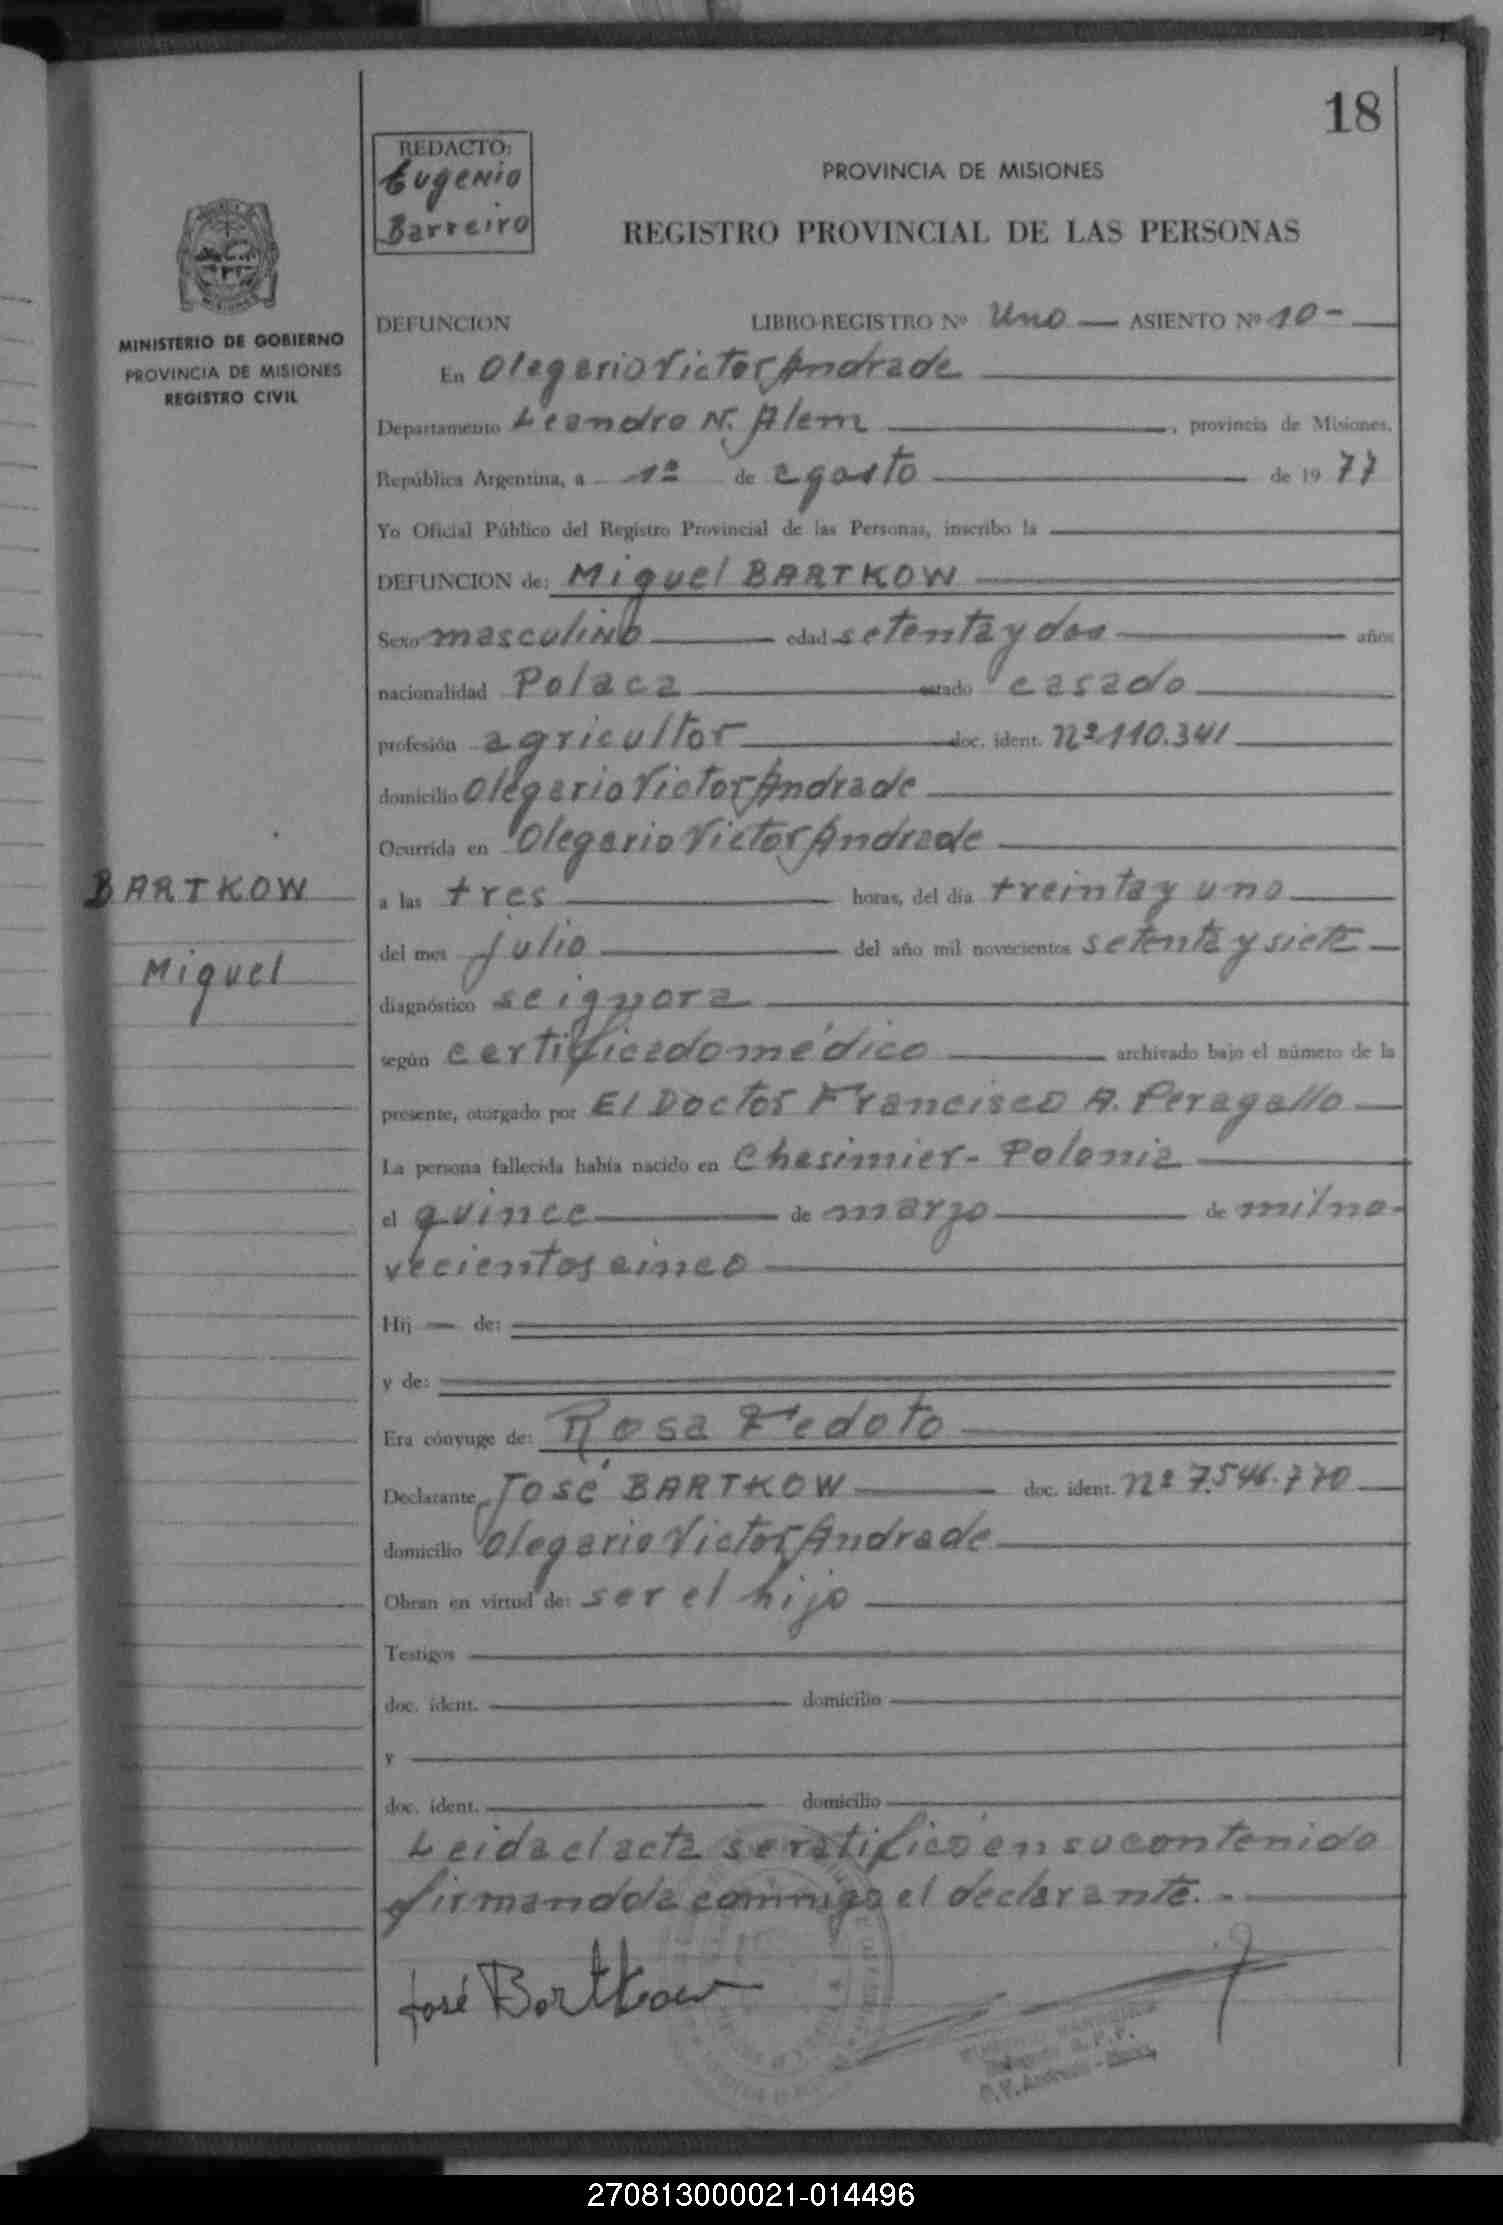 18
REDACTO:
Eugenio
Barreiro
PROVINCIA DE MISIONES
REGISTRO PROVINCIAL DE LAS PERSONAS
MINISTERIO DE GOBIERNO
PROVINCIA DE MISIONES
REGISTRO CIVIL
DEFUNCION LIBRO-REGISTRO Nº Uno — ASIENTO Nº 10 -
En Olegario Victor Andrade
Departamento Leandro N. Alem , provincia de Misiones,
República Argentina, a 1º de agosto de 1977
Yo Oficial Público del Registro Provincial de las Personas, inscribo la
DEFUNCION de: Miguel BARTKOW
Sexo masculino edad setenta y dos años
nacionalidad Polaca estado casado
profesión agricultor doc. ident. nº 110.341
domicilio Olegario Victor Andrade
Ocurrida en Olegario Victor Andrade
BARTKOW
Miguel
a las tres horas, del día treinta y uno
del mes julio del año mil novecientos setenta y siete
diagnóstico se ignora
según certificado médico archivado bajo el número de la
presente, otorgado por El Doctor Francisco A. Peragallo
La persona fallecida había nacido en Chasimier - Polonia
el quince de marzo de mil no-
vecientos cinco
Hij — de:
y de:
Era cónyuge de: Rosa Fedoto
Declarante José BARTKOW doc. ident. nº 7.546.770
domicilio Olegario Victor Andrade
Obran en virtud de: ser el hijo
Testigos
doc. ident. domicilio
y
doc. ident. domicilio
Leida el acta se ratificó en su contenido
firmandola conmigo el declarante. -
José Bartkow
270813000021-014496